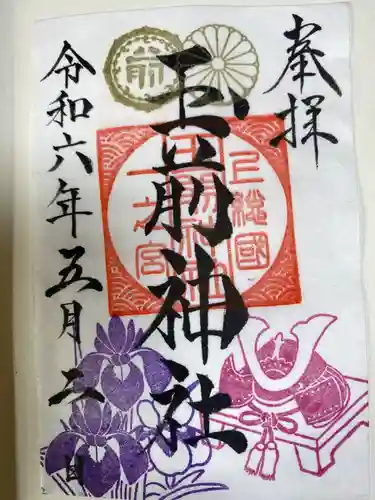 奉拝
玉前神社
上総國
玉前神社
一之宮
前
令和六年五月二日